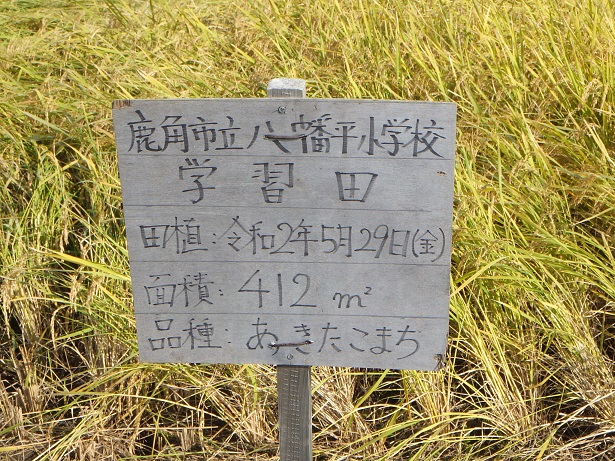 鹿角市立八幡平小学校
学習田
田植:令和2年5月29日(金)
面積:412m²
品種:あきたこまち